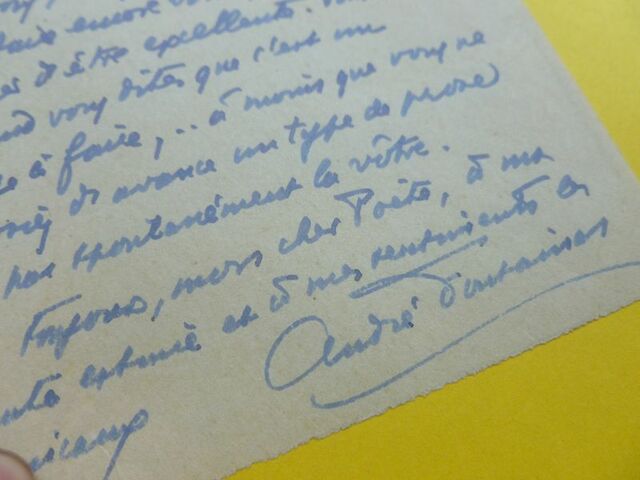 encore
d'être excellente.
vous dites que c'est un
à faire, .. à moins que vous ne
d'avance un type de prose
pas spontanément la vôtre.
Toujours, mon cher Poète, à ma
estime et à mes sentiments les
André Fontainas